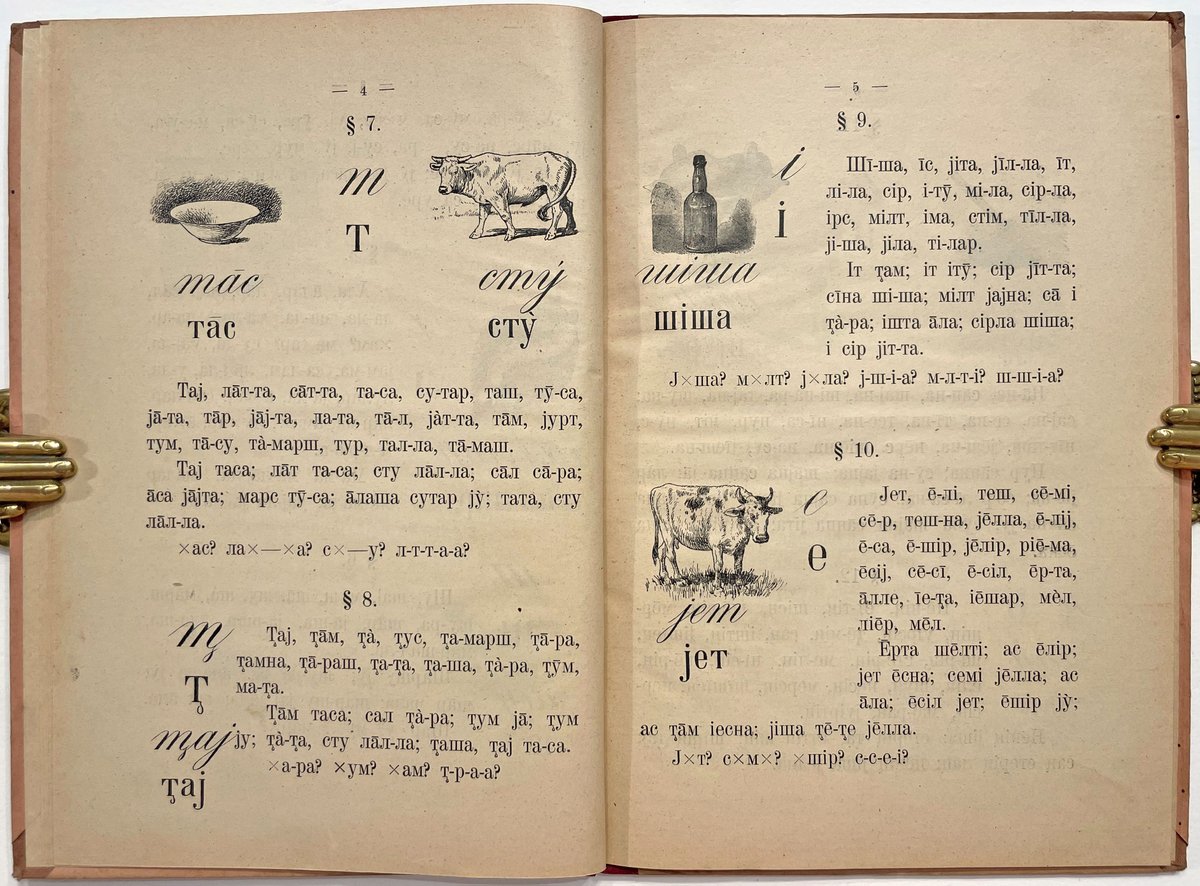 — 4 —
§ 7.
т
т
та̄с
сту̀
та̄с
сту̀
Тај, ла̄т-та, са̄т-та, та-са, су-тар, таш, тӯ-са,
ја̄-та, та̄р, ја̄ј-та, ла-та, та̄-л, ја̀т-та, та̄м, јурт,
тум, та̄-су, та̀-марш, тур, тал-ла, та̄-маш.
Тај таса; ла̄т та-са; сту ла̄л-ла; са̄л са̄-ра;
а̄са ја̄јта; марс тӯ-са; а̄лаша сутар јỳ; тата, сту
ла̄л-ла.
×ас? ла×—×а? с×—у? л-т-т-а-а?
§ 8.
т̨
т̨
т̨ај
т̨ај
Т̨ај, т̨а̄м, т̨а̀, т̨ус, т̨а-марш, т̨а̄-ра,
т̨амна, т̨а̄-раш, т̨а-т̨а, т̨а-ша, т̨а̀-ра, т̨ӯм,
ма-т̨а.
Т̨а̄м таса; сал т̨а̀-ра; т̨ум ја̄; т̨ум
ју; т̨а̀-т̨а, сту ла̄л-ла; т̨аша, т̨ај та-са.
×а-ра? ×ум? ×ам? т̨-р-а-а?
— 5 —
§ 9.
і
і
шіша
шіша
Шı̄-ша, ı̄с, јіта, јı̄л-ла, ı̄т,
лі-ла, сір, і-тӯ, мі-ла, сір-ла,
ірс, мілт, іма, стім, тı̄л-ла,
ји-ша, јіла, ті-лар.
Іт т̨ам; іт ітӯ; сір јı̄т-та;
сı̄на ші-ша; мілт јајна; са̄ і
т̨а̀-ра; ішта а̄ла; сірла шіша;
і сір јіт-та.
Ј×ша? м×лт? ј×ла? ј-ш-і-а? м-л-т-і? ш-ш-і-а?
§ 10.
е
е
јет
јет
Јет, е̄-лі, теш, се̄-мі,
се̄-р, теш-на, је̄лла, е̄-ліј,
е̄-са, е̄-шір, је̄лір, ріе̄-ма,
е̄сіј, се̄-сı̄, е̄-сіл, е̄р-та,
а̄лле, ı̄е-т̨а, іе̄шар, мѐл,
ліе̄р, ме̄л.
Е̄рта ше̄лті; ас е̄лір;
јет е̄сна; семі је̄лла; ас
а̄ла; е̄сіл јет; е̄шір јỳ;
ас т̨а̄м іесна; јіша т̨е̄-т̨е је̄лла.
Ј×т? с×м×? ×шір? с-с-е-і?